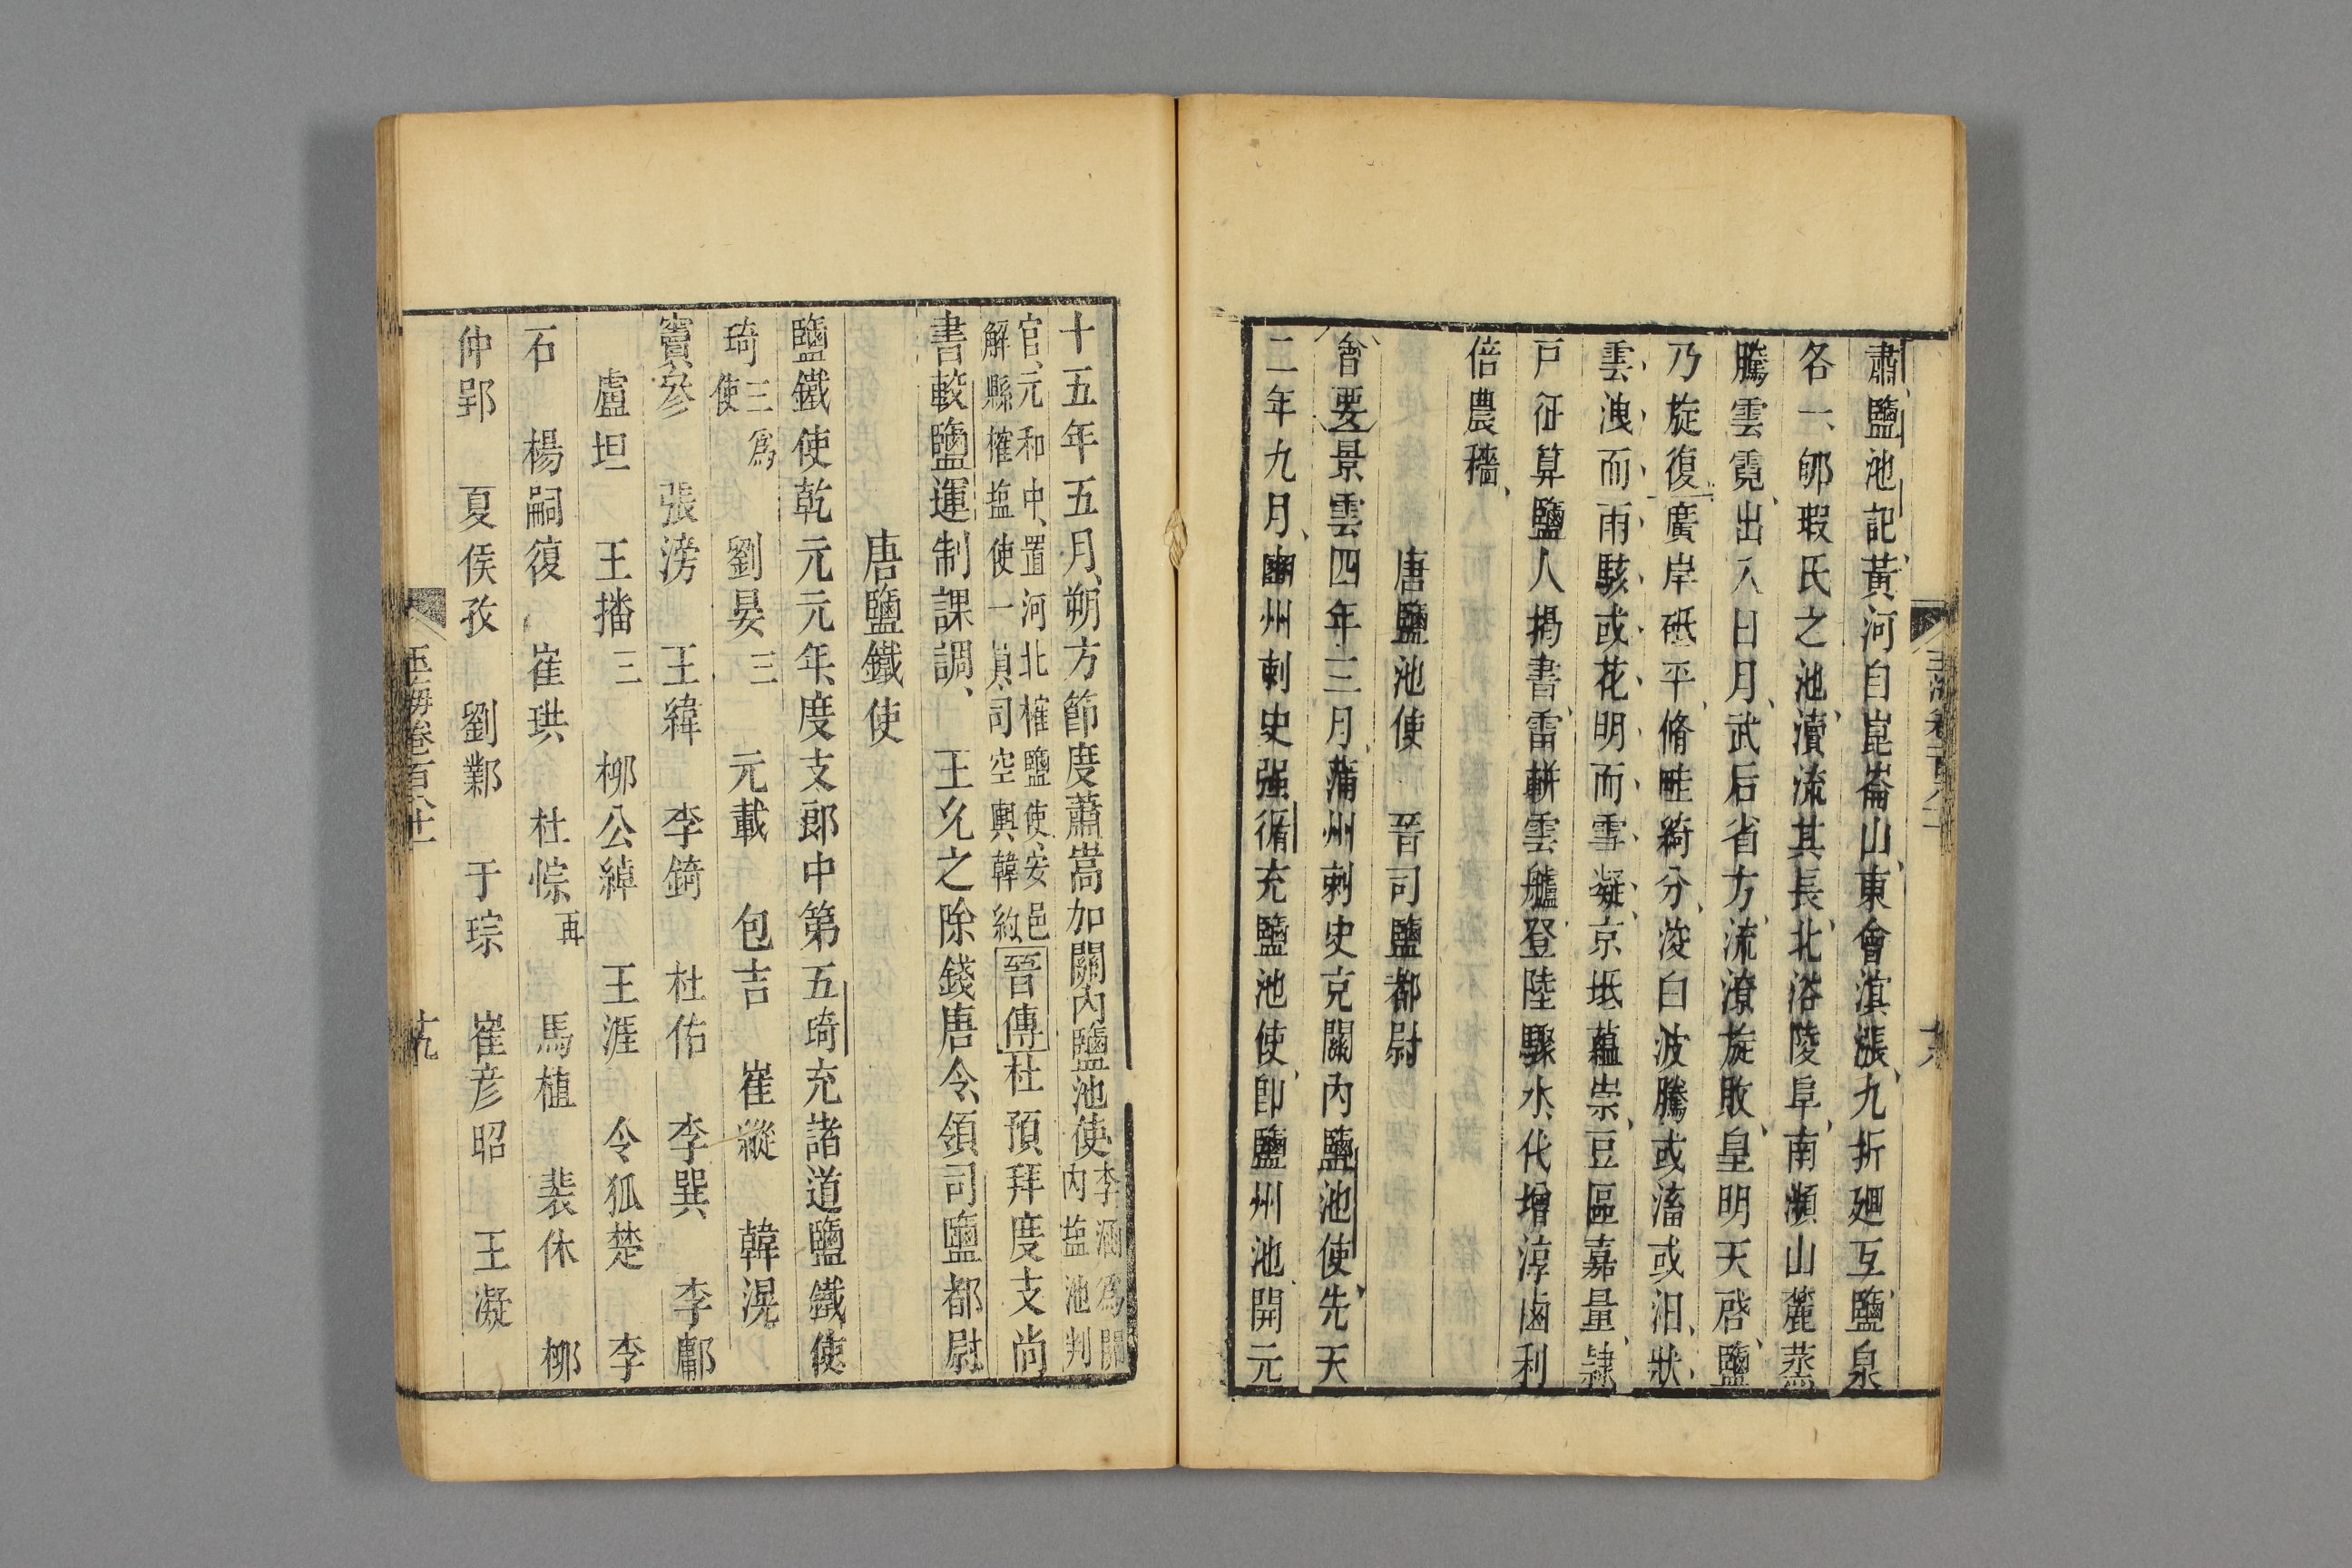 肅鹽池記黃河自崑崙山東會滇漲九折廻互鹽泉
各一郇瑕氏之池瀆流其長北浴陵阜南瀕山麓蒸
騰雲霓出入日月武后省方流潦旋敗皇明天啓鹽
乃旋復廣岸砥平脩畦綺分淩白波騰或滀或汩狀
雲洩而雨駭或花明而雪凝京坻蘊崇豆區嘉量隷
戸征算鹽人掲書雷軿雲艫登陸驟水代增淳鹵利
倍農穡
唐鹽池使 晉司鹽都尉
會要景雲四年三月蒲州刺史充關內鹽池使先天
二年九月幽州刺史强循充鹽池使卽鹽州池開元
十五年五月朔方節度蕭嵩加關內鹽池使李涵爲關
內塩池判
官元和中置河北榷鹽使安邑
解縣榷塩使一員司空輿韓約晉傳杜預拜度支尚
書較鹽運制課調 王允之除錢唐令領司鹽都尉
唐鹽鐵使
鹽鐵使乾元元年度支郎中第五琦充諸道鹽鐵使
琦三爲使 劉晏三 元載 包吉 崔縱 韓滉
竇參 張滂 王緯 李錡 杜佑 李巽 李鄘
盧坦 王播三 柳公綽 王涯 令狐楚 李
石 楊嗣復 崔珙 杜悰再 馬植 裴休 柳
仲郢 夏侯孜 劉鄴 于琮 崔彥昭 王凝
玉海卷百八十一